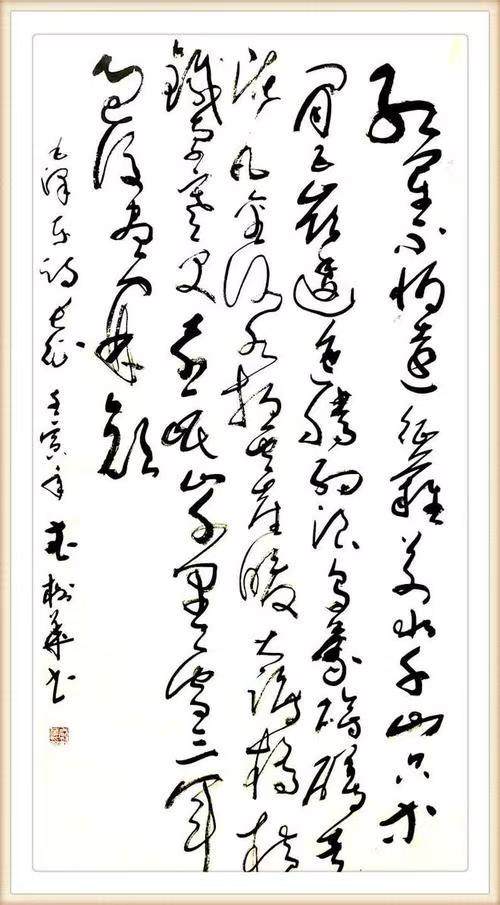 红军不怕远征难万水千山只等
闲五岭逶迤腾细浪乌蒙磅礴走
泥丸金沙水拍云崖暖大渡桥横
铁索寒更喜岷山千里雪三军
过后尽开颜
毛泽东诗长征 壬寅年 武树华书